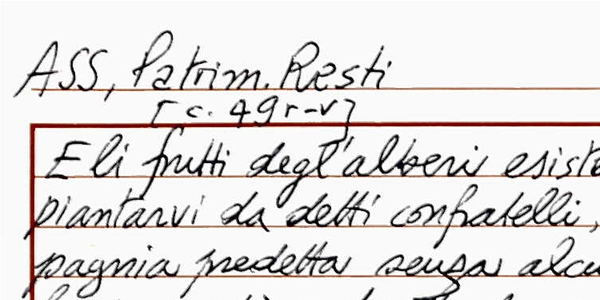 ASS, Patrim. Resti
[c. 49r-v]
E li frutti degl'alberi esiste
piantarvi da detti confratelli,
pagnia predetta senza alcu